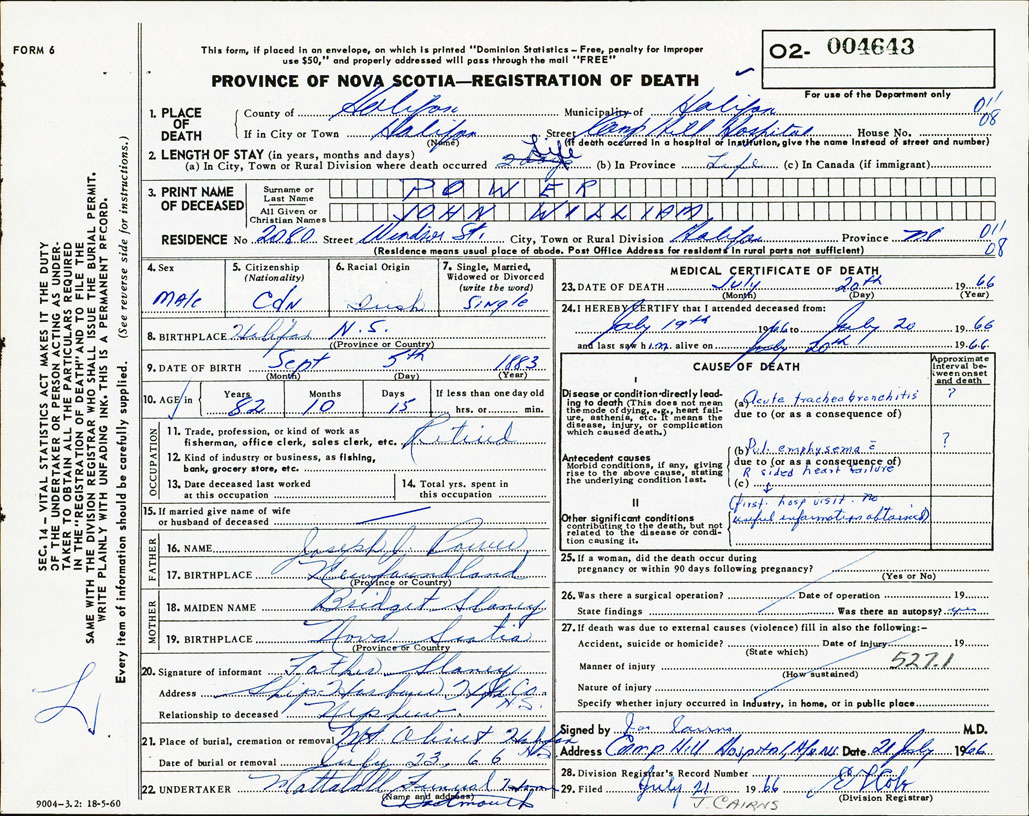 FORM 6
This form, if placed in an envelope, on which is printed "Dominion Statistics – Free, penalty for improper
use $50," and properly addressed will pass through the mail "FREE"
PROVINCE OF NOVA SCOTIA—REGISTRATION OF DEATH
O2- 004643
For use of the Department only
1. PLACE OF DEATH
County of Halifax Municipality of Halifax 011
If in City or Town Halifax Street Camp Hill Hospital House No. 08
(Name) (If death occurred in a hospital or institution, give the name instead of street and number)
2. LENGTH OF STAY (in years, months and days)
(a) In City, Town or Rural Division where death occurred Life (b) In Province Life (c) In Canada (if immigrant)
3. PRINT NAME OF DECEASED
Surname or Last Name POWER
All Given or Christian Names JOHN WILLIAM
RESIDENCE No 2080 Street Windsor St. City, Town or Rural Division Halifax Province NS 011
(Residence means usual place of abode. Post Office Address for residents in rural parts not sufficient) 08
4. Sex
Male
5. Citizenship (Nationality)
Cdn
6. Racial Origin
Irish
7. Single, Married, Widowed or Divorced (write the word)
Single
8. BIRTHPLACE Halifax N.S.
(Province or Country)
9. DATE OF BIRTH Sept 5th 1883
(Month) (Day) (Year)
10. AGE in Years 82 Months 10 Days 15 If less than one day old hrs. or min.
OCCUPATION
11. Trade, profession, or kind of work as fisherman, office clerk, sales clerk, etc. Retired
12. Kind of industry or business, as fishing, bank, grocery store, etc.
13. Date deceased last worked at this occupation
14. Total yrs. spent in this occupation
15. If married give name of wife or husband of deceased
FATHER
16. NAME Joseph J. Power
17. BIRTHPLACE Newfoundland
(Province or Country)
MOTHER
18. MAIDEN NAME Bridget Slaney
19. BIRTHPLACE Nova Scotia
(Province or Country)
20. Signature of informant Father Slaney
Address Ship Harbour Hfx Co. N.S.
Relationship to deceased Nephew
21. Place of burial, cremation or removal Mt. Olivet Halifax NS
Date of burial or removal July 23, 66
22. UNDERTAKER Mattatall Funeral Home
(Name and address) Dartmouth
9004-3.2: 18-5-60
MEDICAL CERTIFICATE OF DEATH
23. DATE OF DEATH July 20th 1966
(Month) (Day) (Year)
24. I HEREBY CERTIFY that I attended deceased from:
July 19th 1966 to July 20 1966
and last saw him alive on July 20th 1966
CAUSE OF DEATH
Approximate interval between onset and death
I
Disease or condition directly leading to death (This does not mean the mode of dying, e.g., heart failure, asthenia, etc. It means the disease, injury, or complication which caused death.)
(a) Acute tracheobronchitis ?
due to (or as a consequence of)
Antecedent causes
Morbid conditions, if any, giving rise to the above cause, stating the underlying condition last.
(b) Pul. emphysema c̄ ?
due to (or as a consequence of)
R sided heart failure
(c)
II
Other significant conditions
contributing to the death, but not related to the disease or condition causing it.
(First hosp visit. no
useful information obtained)
25. If a woman, did the death occur during pregnancy or within 90 days following pregnancy?
(Yes or No)
26. Was there a surgical operation? Date of operation 19
State findings Was there an autopsy? yes
27. If death was due to external causes (violence) fill in also the following:–
Accident, suicide or homicide? Date of injury 19
(State which)
Manner of injury 527.1
(How sustained)
Nature of injury
Specify whether injury occurred in industry, in home, or in public place
Signed by Jas Cairns M.D.
Address Camp Hill Hospital, Date 21 July 1966
28. Division Registrar's Record Number
29. Filed July 21 1966
(Division Registrar)
J. CAIRNS
SEC. 14– VITAL STATISTICS ACT MAKES IT THE DUTY
OF THE UNDERTAKER OR PERSON ACTING AS UNDER-
TAKER TO OBTAIN ALL THE PARTICULARS REQUIRED
IN THE "REGISTRATION OF DEATH" AND TO FILE THE
SAME WITH THE DIVISION REGISTRAR WHO SHALL ISSUE THE BURIAL PERMIT.
WRITE PLAINLY WITH UNFADING INK. THIS IS A PERMANENT RECORD.
Every item of information should be carefully supplied. (See reverse side for instructions.)